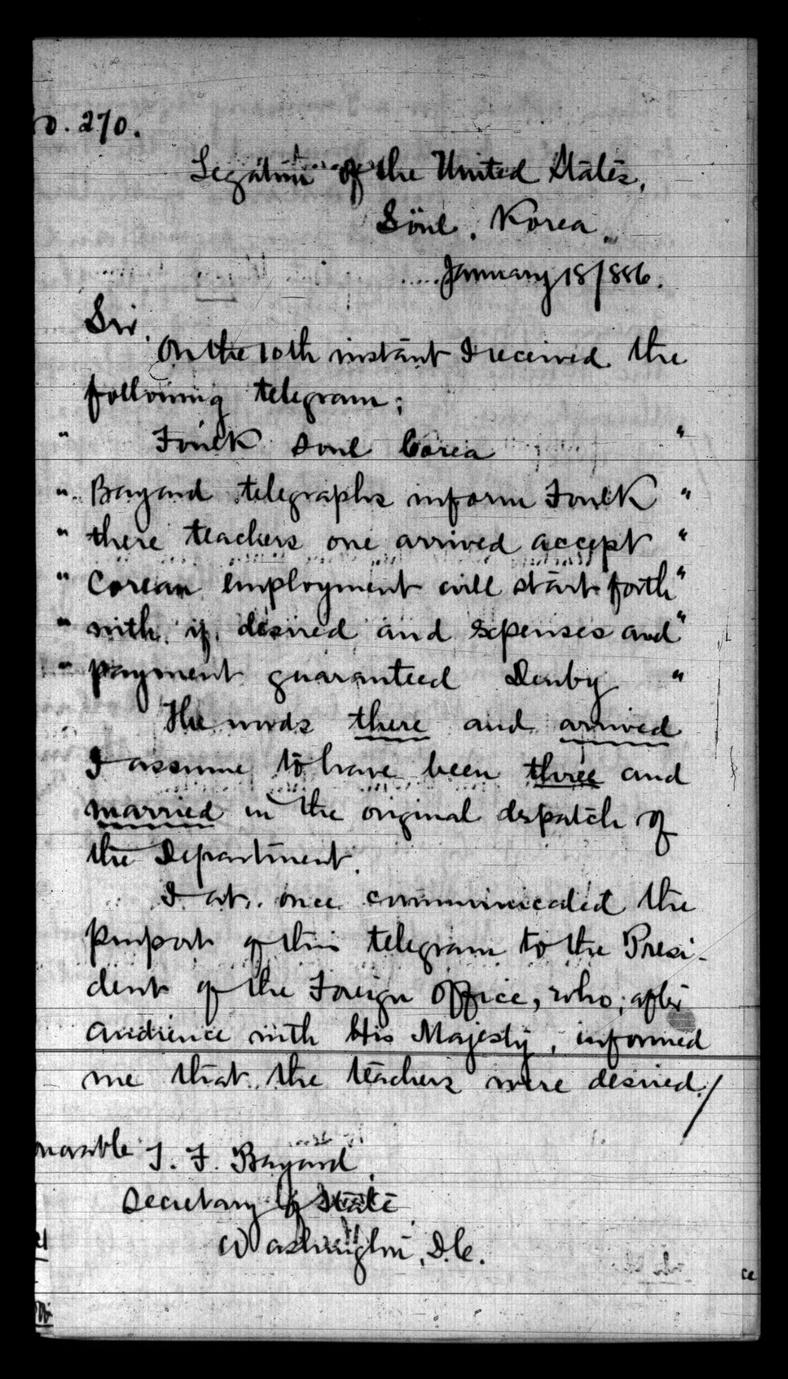 o. 270.
Legation of the United States,
Söul, Korea,
January 18/886.
Sir.
On the 10th instant I received the
following telegram;
" Foulk Soul Corea "
" Bayard telegraphs inform Foulk "
" there teachers one arrived accept "
" Corean employment will start forth "
" with if desired and expenses and "
" payment guaranteed Denby "
The words there and arrived
I assume to have been three and
married in the original dispatch of
the Department.
I at once communicated the
purport of this telegram to the Presi-
dent of the Foreign Office, who, after
audience with His Majesty, informed
me that the teachers were desired./
onorable T. F. Bayard,
Secretary of State
Washington, D.C.